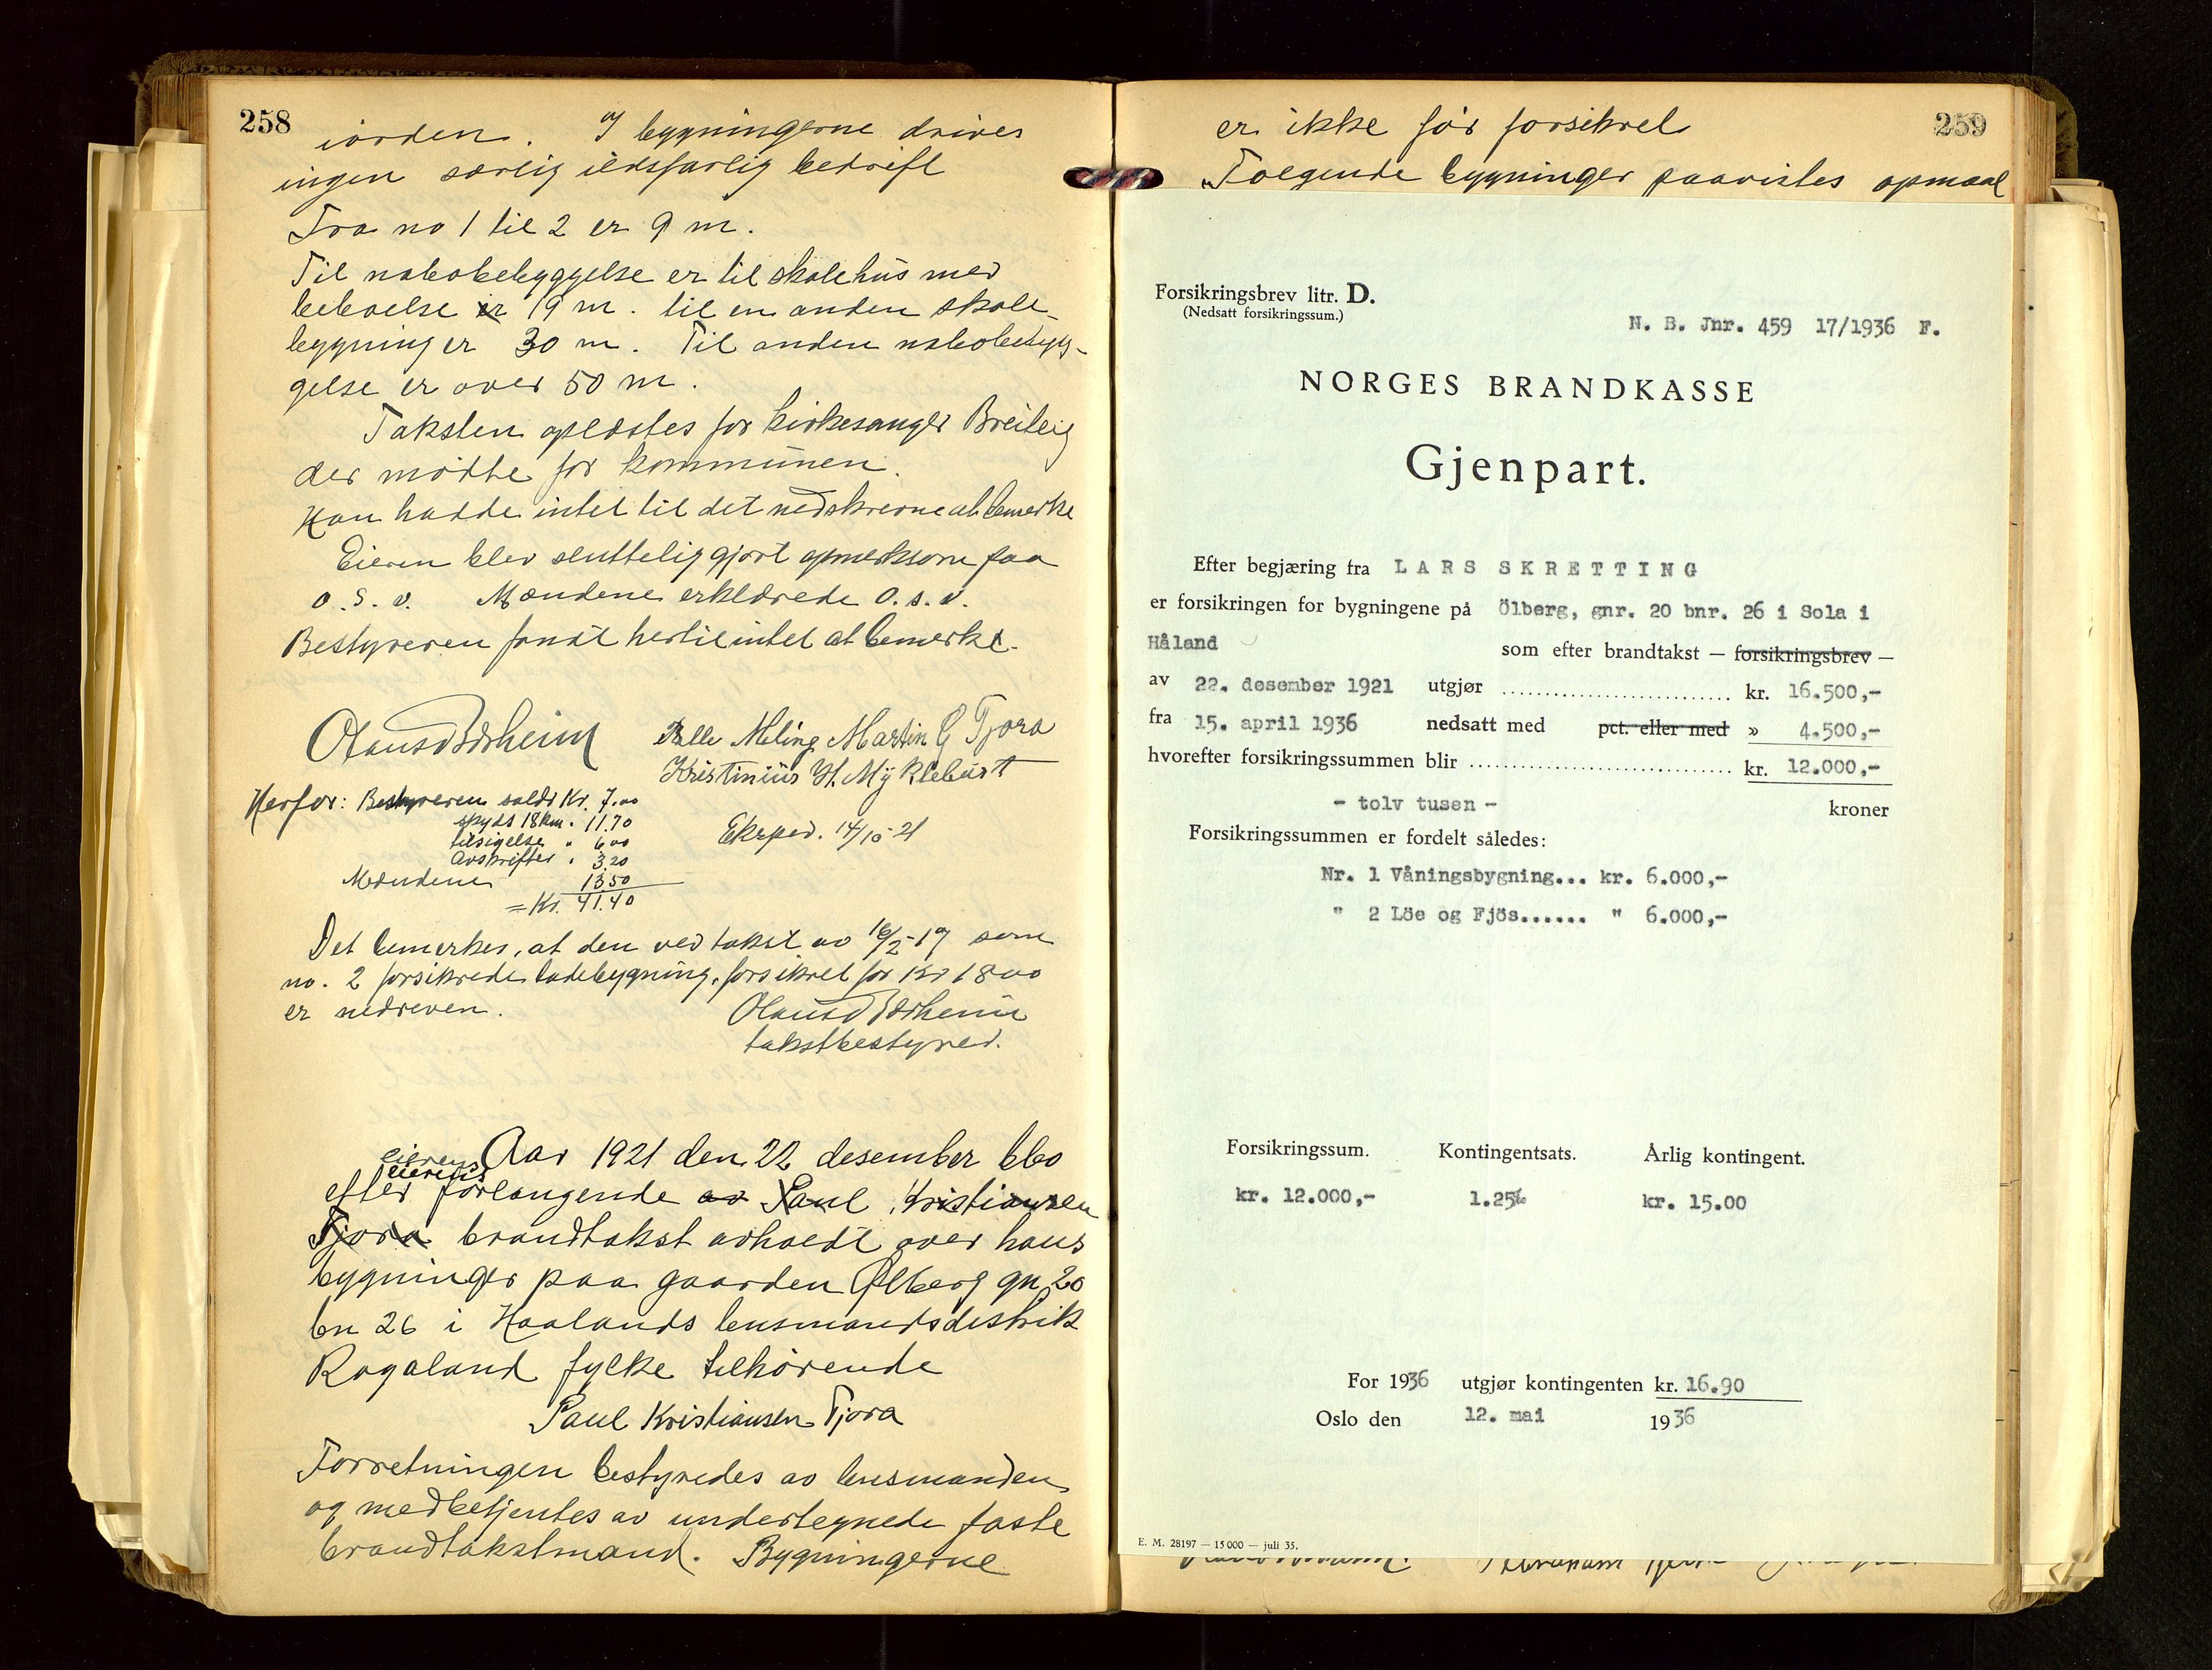 258
jorden. I bygningerne drives
ingen særlig ildsfarlig bedrift
Fra no 1 til 2 er 9 m.
Til nabobebyggelse er til skolehus med
beboelse er 19 m. til en anden skole-
bygning er 30 m. Til anden nabobebyg-
gelse er over 50 m.
Taksten oplæstes for kirkesanger Breiteig
der mødte for kommunen.
Han hadde intet til det nedskrevne at bemerke
Eieren blev sluttelig gjort opmerksom paa
o. s. v. Mændene erklærede o. s. v.
Bestyreren fandt hertil intet at bemerke.
Olaus Bærheim
Palle Meling Martin G Tjora
Kristinius H. Myklebust
Herfor: Bestyreren salær Kr. 7.00
skyds 18 km. " 11.70
tilsigelse " 6 00
Avskrifter " 3.20
Mændene 13 50
= Kr. 41.40
Eksped. 14/10-21
Det bemerkes, at den ved takst av 16/2-19 som
no. 2 forsikrede ladebygning, forsikret for Kr 1800
er nedreven.
Olaus Bærheim
takstbestyrer.
eierens Aar 1921 den 22 desember blev
efter eierens forlangende av Paul Kristiansen
Tjora brandtakst avholdt over hans
bygninger paa gaarden Ølberg gn 20
bn 26 i Haalands lensmandsdistrik
Rogaland fylke tilhørende
Paul Kristiansen Tjora
Forretningen bestyredes av lensmanden
og medbetjentes av undertegnede faste
brandtakstmænd. Bygningerne
259
er ikke før forsikret
Følgende bygninger paavistes opmaal
Forsikringsbrev litr. D.
(Nedsatt forsikringssum.)
N. B. Jnr. 459 17/1936 F.
NORGES BRANDKASSE
Gjenpart.
Efter begjæring fra LARS SKRETTING
er forsikringen for bygningene på Ölberg, gnr. 20 bnr. 26 i Sola i
Håland som efter brandtakst — forsikringsbrev —
av 22. desember 1921 utgjør ........................... kr. 16.500,-
fra 15. april 1936 nedsatt med pct. eller med » 4.500,-
hvorefter forsikringssummen blir ............................... kr. 12.000,-
- tolv tusen - kroner
Forsikringssummen er fordelt således:
Nr. 1 Våningsbygning... kr. 6.000,-
" 2 Löe og Fjös...... " 6.000,-
Forsikringssum. Kontingentsats. Årlig kontingent.
kr. 12.000,- 1.25‰ kr. 15.00
For 1936 utgjør kontingenten kr. 16.90
Oslo den 12. mai 1936
E. M. 28197 — 15000 — juli 35.